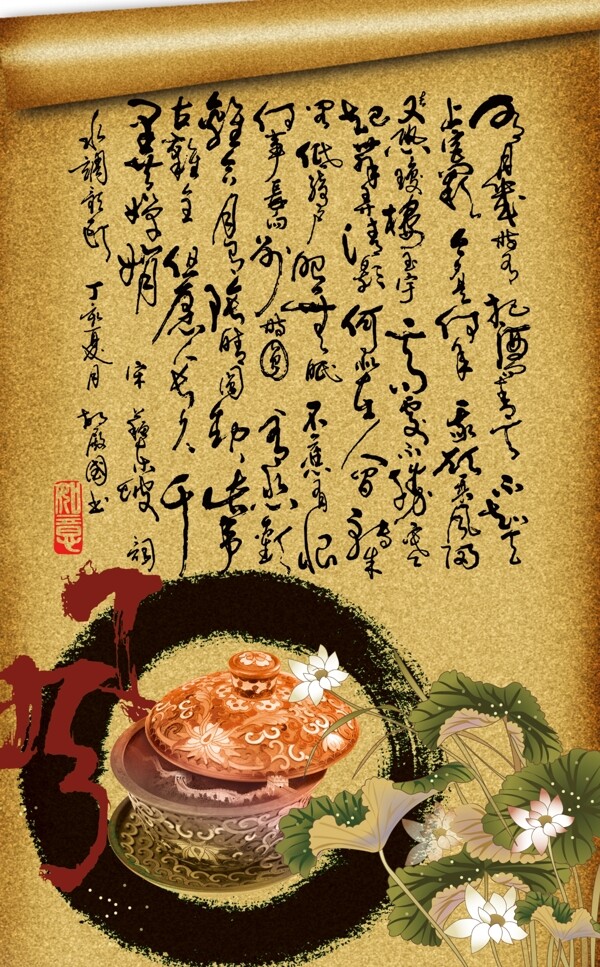 明月幾時有 把酒問青天 不知天
上宮闕 今夕是何年 我欲乘風歸
去 又恐瓊樓玉宇 高處不勝寒
起舞弄清影 何似在人間 轉朱
閣 低綺戶 照無眠 不應有恨
何事長向別時圓 人有悲歡
離合 月有陰晴圓缺 此事
古難全 但願人長久 千
里共嬋娟 宋 蘇東坡 詞
水調歌頭 丁亥夏月 國書
如意